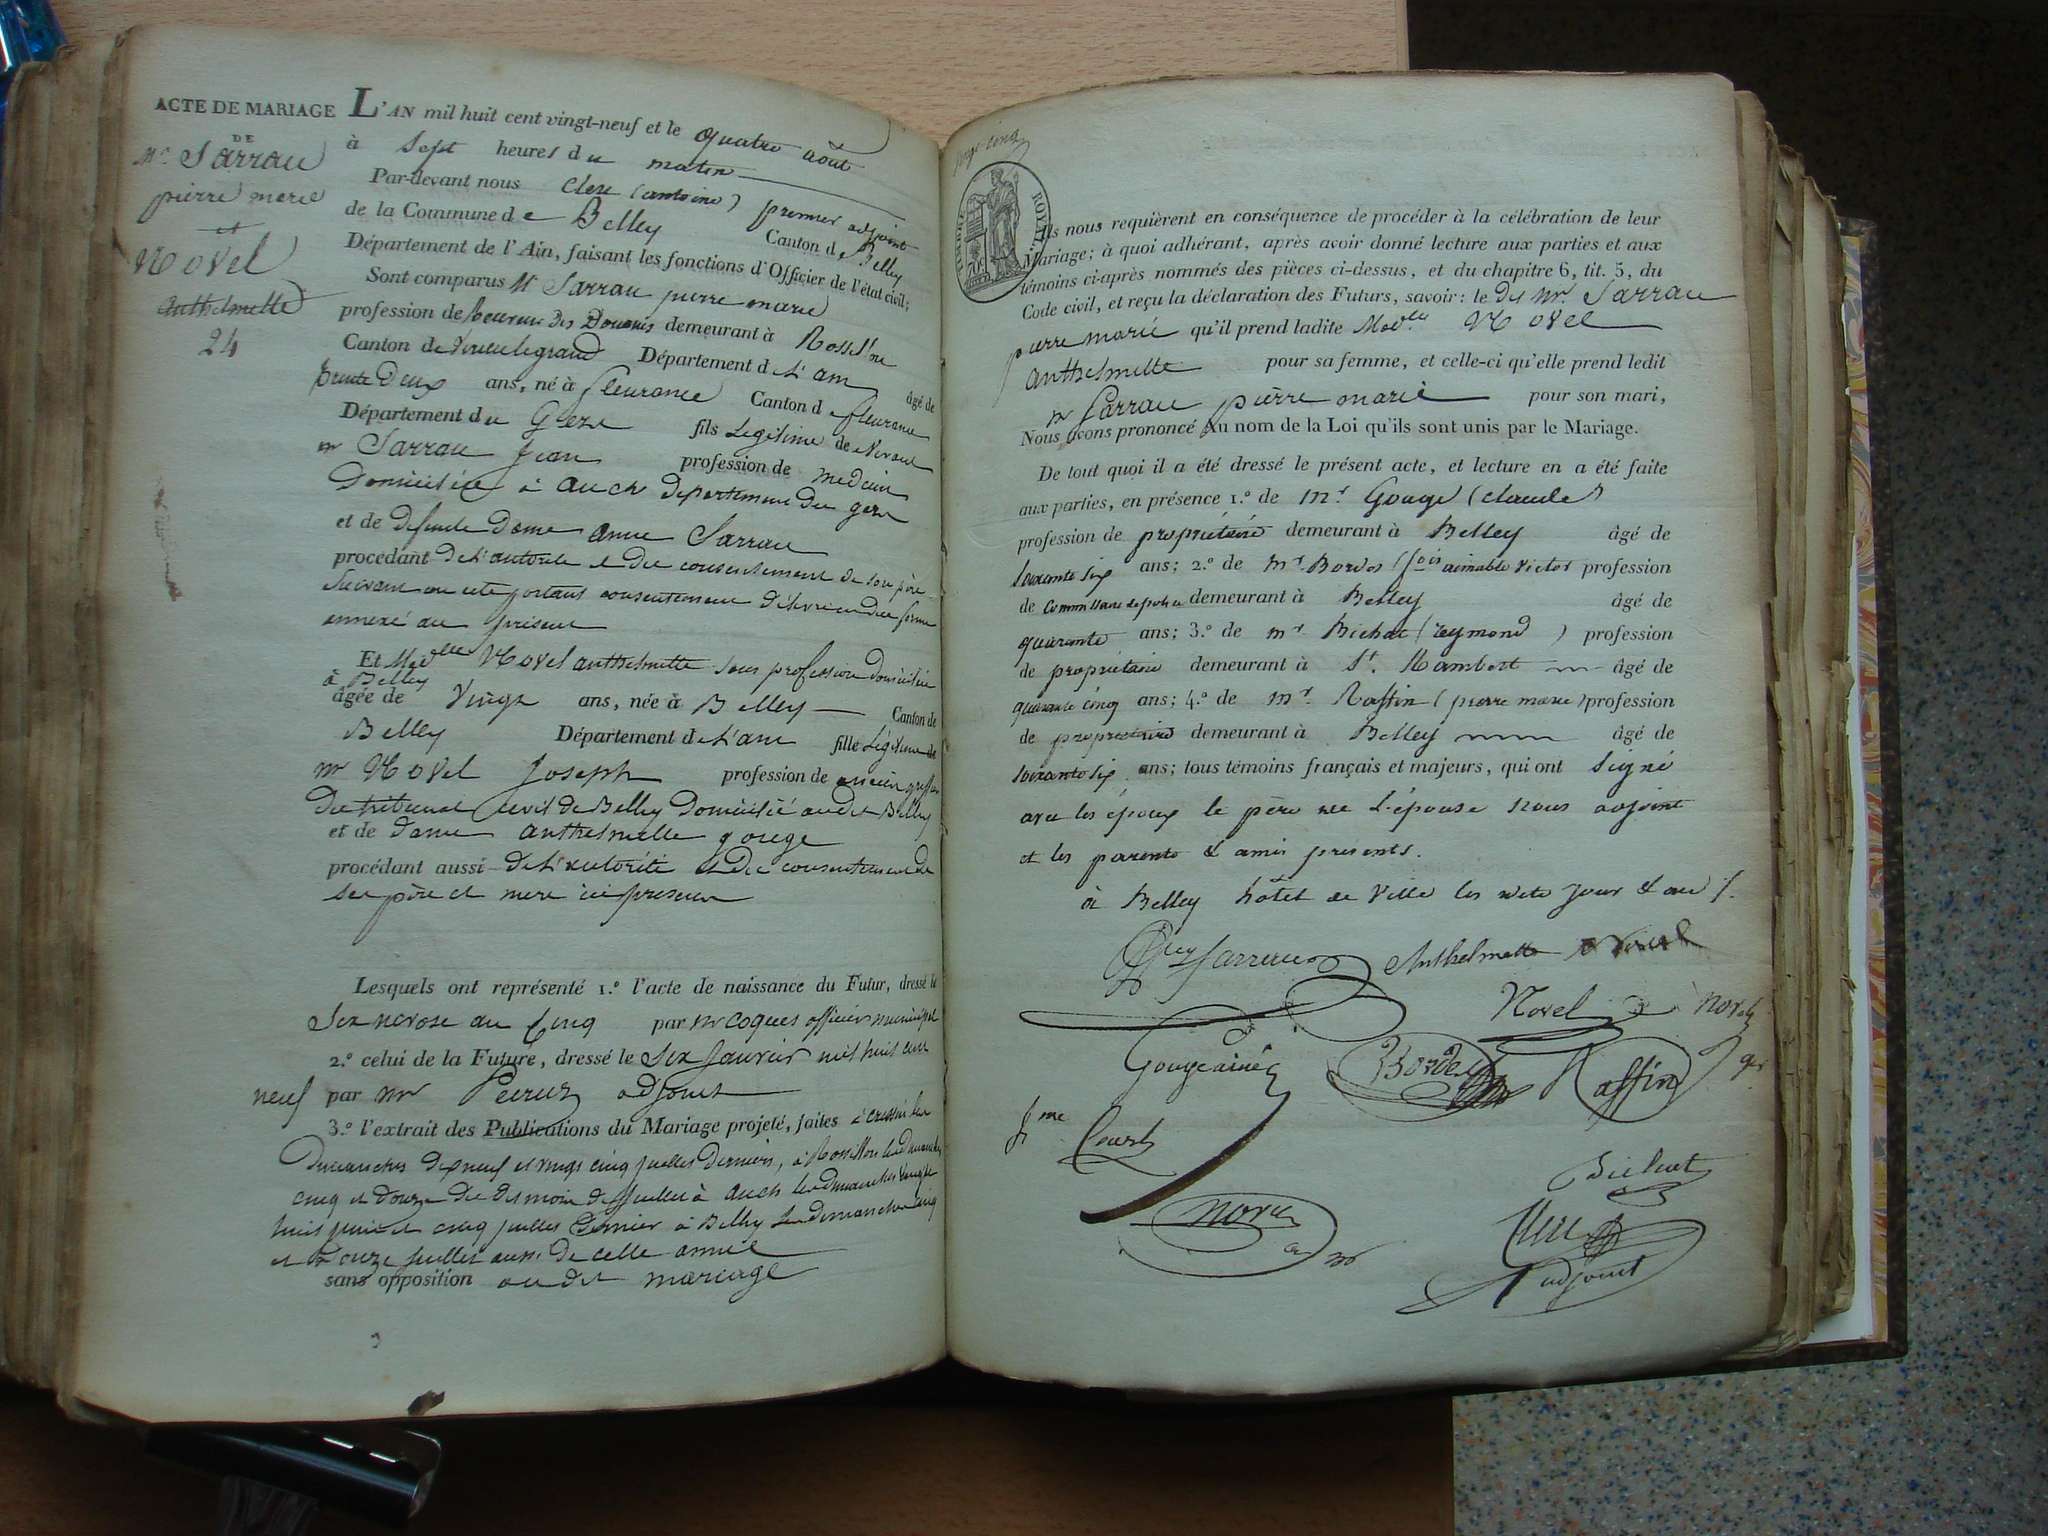 ACTE DE MARIAGE
DE
Mr Sarrau
pierre marie
et
Novel
Anthelmette
24
L'AN mil huit cent vingt-neuf et le quatre août
à Sept heures du matin
Par-devant nous Clerc (antoine) premier adjoint
de la Commune de Belley Canton de Belley
Département de l'Ain, faisant les fonctions d'Officier de l'état civil;
Sont comparus Mr Sarrau pierre marie
profession de Receveur des Douanes demeurant à
Canton de Département de L'ain âgé de
trente Deux ans, né à fleurance Canton de fleurance
Département du Gers fils Légitime de vivant
mr Sarrau Jean profession de medecin
Domicilié à auch departement du gers
et de defunte Dame anne Sarrau
procédant de L'autorité et du consentement de son père
suivant un acte portant consentement délivré en due forme
annexé au présent
Et Madlle Novel anthelmette sans profession domiciliée
à Belley
âgée de vingt ans, née à Belley Canton de
Belley Département de L'ain fille Légitime de
mr Novel Joseph profession de ancien greffier
du tribunal Civil de Belley Domicilié audit Belley
et de dame anthelmette gouge
procédant aussi de L'autorité et du consentement de
ses père et mere ici presens
Lesquels ont représenté 1.º l'acte de naissance du Futur, dressé le
Six nivose an Cinq par mr coques officier municipal
2.º celui de la Future, dressé le Six Janvier mil huit cent
neuf par mr adjoint
3.º l'extrait des Publications du Mariage projeté, faites à les
Dimanches dixneuf et vingt cinq juillet derniers, à Rossillon les dimanches
cinq et douze du dit mois de Juillet à auch les dimanches vingt
huit juin et cinq juillet dernier à Belley les dimanches cinq
et douze juillet aussi de cette année
sans opposition audit mariage
TIMBRE ROYAL
70c
Ils nous requièrent en conséquence de procéder à la célébration de leur
Mariage; à quoi adhérant, après avoir donné lecture aux parties et aux
témoins ci-après nommés des pièces ci-dessus, et du chapitre 6, tit. 5, du
Code civil, et reçu la déclaration des Futurs, savoir: le dit mr. Sarrau
pierre marie qu'il prend ladite Madlle Novel
Anthelmette pour sa femme, et celle-ci qu'elle prend ledit
mr Sarrau pierre marie pour son mari,
Nous avons prononcé Au nom de la Loi qu'ils sont unis par le Mariage.
De tout quoi il a été dressé le présent acte, et lecture en a été faite
aux parties, en présence 1.º de Mr Gouge (claude)
profession de propriétaire demeurant à Belley âgé de
soixante six ans; 2.º de mr. Bordos (fois aimable victor profession
de Commissaire de police demeurant à Belley âgé de
quarante ans; 3.º de mr. Bichat (reymond) profession
de propriétaire demeurant à St. Rambert âgé de
quarante cinq ans; 4.º de mr. Raffin (pierre marie) profession
de propriétaire demeurant à Belley âgé de
soixante six ans; tous témoins français et majeurs, qui ont signé
avec les époux le père de L'épouse nous adjoint
et les parents & amis presents.
à Belley hôtel de ville les dits jour & an
Sarrau Anthelmette Novel
Novel Novel
Gouge ainé Bordes Raffin
fme
Bichat
Novel
Clerc
adjoint